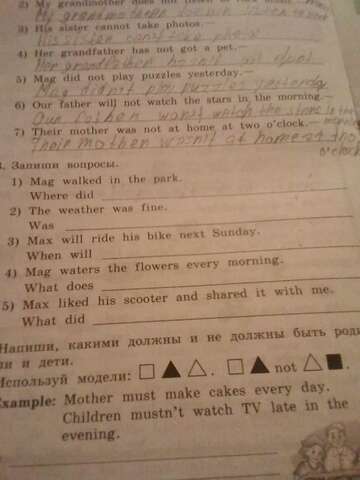 2) My grandmother does not listen to rock music.
My grandmother doesn't listen to rock
3) His sister cannot take photos.—
His sister can't take photo
4) Her grandfather has not got a pet.—
Her grandfather hasn't
5) Mag did not play puzzles yesterday.—
Mag didn't play puzzles yesterday
6) Our father will not watch the stars in the morning.—
Our father won't watch the stars in the
7) Their mother was not at home at two o'clock.—
Their mother wasn't at home at two
o'clock
3. Запиши вопросы.
1) Mag walked in the park.
Where did
2) The weather was fine.
Was
3) Max will ride his bike next Sunday.
When will
4) Mag waters the flowers every morning.
What does
5) Max liked his scooter and shared it with me.
What did
Напиши, какими должны и не должны быть роди
ли и дети.
Используй модели: □ ▲ △. □ ▲ not △ ■.
Example: Mother must make cakes every day.
Children mustn't watch TV late in the
evening.